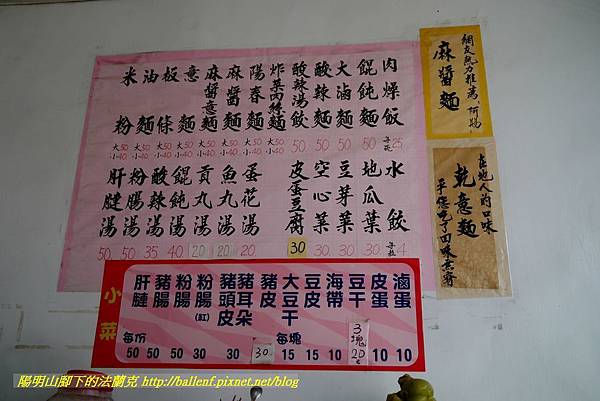 肉燥飯 每碗25
餛飩麵 50
大滷麵 50
酸辣麵 50
酸辣湯餃 50
炸菜肉絲麵 大50 小40
陽春麵 大50 小40
麻醬麵 大50 小40
麻醬意麵 大50 小40
意麵 大50 小40
板條 大50 小40
油麵 大50 小40
米粉 大50 小40
水餃 4
地瓜葉 30
豆芽菜 30
空心菜 30
皮蛋豆腐 30
蛋花湯 20
魚丸湯 20
貢丸湯 20
餛飩湯 40
酸辣湯 40
粉腸湯 35
肝腱湯 50
網友熱力推薦
麻醬麵
在地人的口味
乾意麵
小菜
肝腱 豬腸 粉腸 粉腸(紅) 豬頭皮 豬耳朵 豬皮 大豆干 豆皮 海帶 豆干 皮蛋 滷蛋
每份 每塊 3塊
50 50 50 30 30 30 15 15 10 20 10 10
陽明山腳下的法蘭克 http://ballenf.pixnet.net/blog